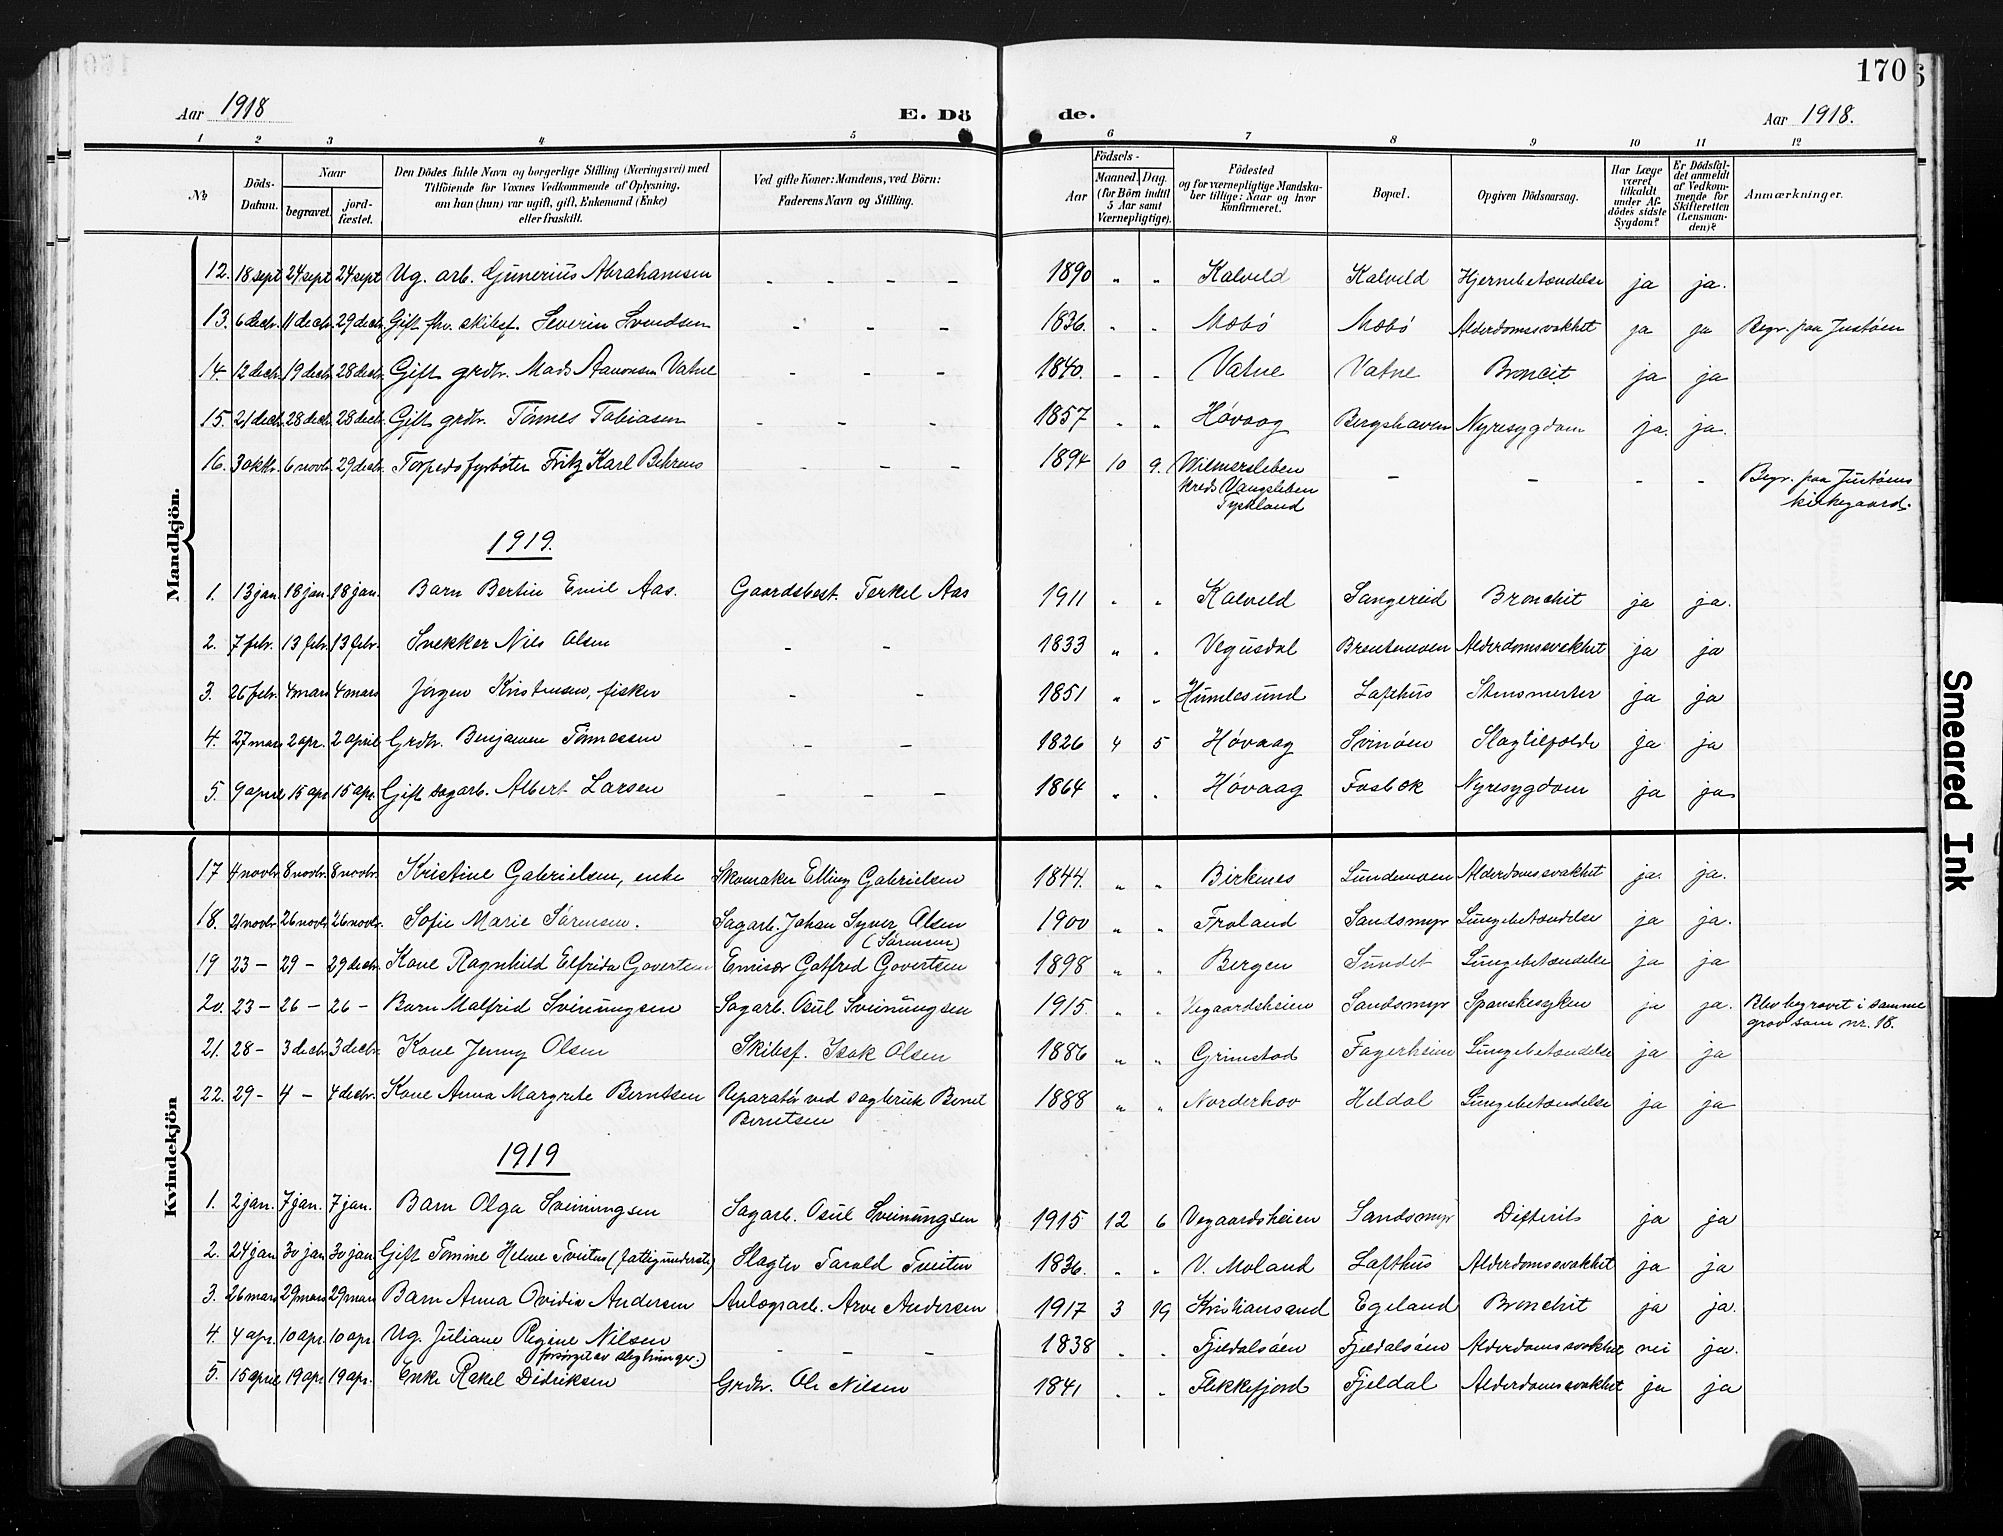 170
Aar 1918
E. Dö de.
Aar 1918.
1 2 3 4 5 6 7 8 9 10 11 12
No
Döds-Datum.
Naar
begravet.
jord-fæstet.
Den Dödes fulde Navn og borgerlige Stilling (Næringsvei) med
Tilföiende for Voxnes Vedkommende af Oplysning,
om han (hun) var ugift, gift, Enkemand (Enke)
eller fraskilt.
Ved gifte Koner: Mandens, ved Börn:
Faderens Navn og Stilling.
Födsels-
Aar
Maaned. Dag.
(for Börn indtil
5 Aar samt
Værnepligtige).
Födested
og for værnepligtige Mandska-
ber tillige: Naar og hvor
konfirmeret.
Bopæl.
Opgiven Dödsaarsag.
Har Læge
været
tilkaldt
under Af-
dödes sidste
Sygdom?
Er Dödsfal-
det anmeldt
af Vedkom-
mende for
Skifteretten
(Lensman-
den)?
Anmærkninger.
Mandkjön.
12. 18 sept 24 sept 24 sept Ug. arb. Gunerius Abrahamsen - - - - 1890 " " Kalveld Kalveld Hjernebetændelse ja ja.
13. 6 decbr. 11 decbr. 29 decbr. Gift fhv. skibsf. Severin Svendsen - - - 1836. " " Mæbö Mæbö Alderdomssvakhet ja ja Begr. paa Justöen
14. 12 decbr. 19 decbr. 28 decbr. Gift grdbr. Mads Aanonsen Vatne - - - 1840. - - Vatne Vatne Broncit ja ja
15. 21 decbr. 28 decbr. 28 decbr. Gift grdbr. Tönnes Tobiasen - - - 1857 " " Hövaag Bergshaven Nyresygdom ja. ja.
16. 3 oktbr. 6 novbr. 29 decbr. Torpedofyrböter Fritz Karl Behrens - - - 1894 10 9. Wilmersleben - - - - Begr. paa Justöens
kreds Vangsleben kirkegaard.
Tyskland
1919.
1. 13 jan. 18 jan. 18 jan. Barn Bertin Emil Aas. Gaardsbest. Terkel Aas 1911 " " Kalveld Sangereid Bronchit ja ja.
2. 7 febr. 13 febr. 13 febr. Snekker Nils Olsen - - 1833 " " Vegusdal Brentemoen Alderdomssvakhet ja ja
3. 26 febr. 4 mars 4 mars Jörgen Kristensen, fisker - - 1851 " " Humlesund Lofthus Stensmerter ja ja
4. 27 mars 2 apr. 2 april Grdbr. Benjamin Tönnessen - - 1826 4 5 Hövaag Svinöen Slagtilfælde ja ja
5. 9 april 15 apr. 15 apr. Gift sagarb. Albert Larsen - - - 1864 " " Hövaag Fosbæk Nyresygdom ja ja
Kvindekjön
17 4 novbr. 8 novbr. 8 novbr. Kristine Gabrielsen, enke Skomaker Elling Gabrielsen 1844. " " Birkenes Lundemoen Alderdomssvakhet ja. ja.
18. 21 novbr. 26 novbr. 26 novbr. Sofie Marie Sörensen. Sagarb. Johan Syver Olsen 1900 " " Froland Sandsmyr Lungebetændelse ja ja.
(Sörensen)
19 23 - 29 - 29 decbr. Kone Ragnhild Elfrida Govertsen Emisær Gotfred Govertsen 1898 " " Bergen Sundet Lungebetændelse ja ja
20. 23 - 26 - 26 - Barn Malfrid Sveinungsen Sagarb. Osul Sveinungsen 1915. " " Vegaardsheien Sandsmyr Spanskesyken ja ja. Blev begravet i samme
grav som nr. 18.
21. 28 - 3 decbr. 3 decbr. Kone Jenny Olsen Skibsf. Isak Olsen 1886 " " Grimstad Fagerheim Lungebetændelse ja ja
22. 29 - 4 - 4 decbr. Kone Anna Margrete Berntsen Reparatör ved sagbruk Bernt 1888 " " Norderhov Heldal Lungebetændelse ja ja
Berntsen
1919
1. 2 jan. 7 jan. 7 jan. Barn Olga Sveinungsen Sagarb. Osul Sveinungsen 1915 12 6 Vegaardsheien Sandsmyr Difterits ja ja
2. 24 jan 30 jan 30 jan. Gift Tomine Helene Tveiten (fattigunderst.) Slagter Tarald Tveiten 1836. " " V. Moland Lofthus Alderdomssvakhet ja ja
3. 26 mars 29 mars 29 mars Barn Anna Ovidia Andersen Anlægsarb. Arve Andersen 1917 3 19 Kristiansand Egeland Bronchit ja ja.
4. 4 apr. 10 apr. 10 apr. Ug. Juliane Regine Nilsen - - - 1838 " " Fjeldalsöen Fjeldalsöen Alderdomssvakhet nei ja.
forsörget av slegtninger.)
5. 15 april 19 apr 19 apr. Enke Rakel Didriksen Grdbr. Ole Nilsen 1841 " " Flekkefjord Fjeldal Alderdomssvakhet ja ja
Smeared Ink